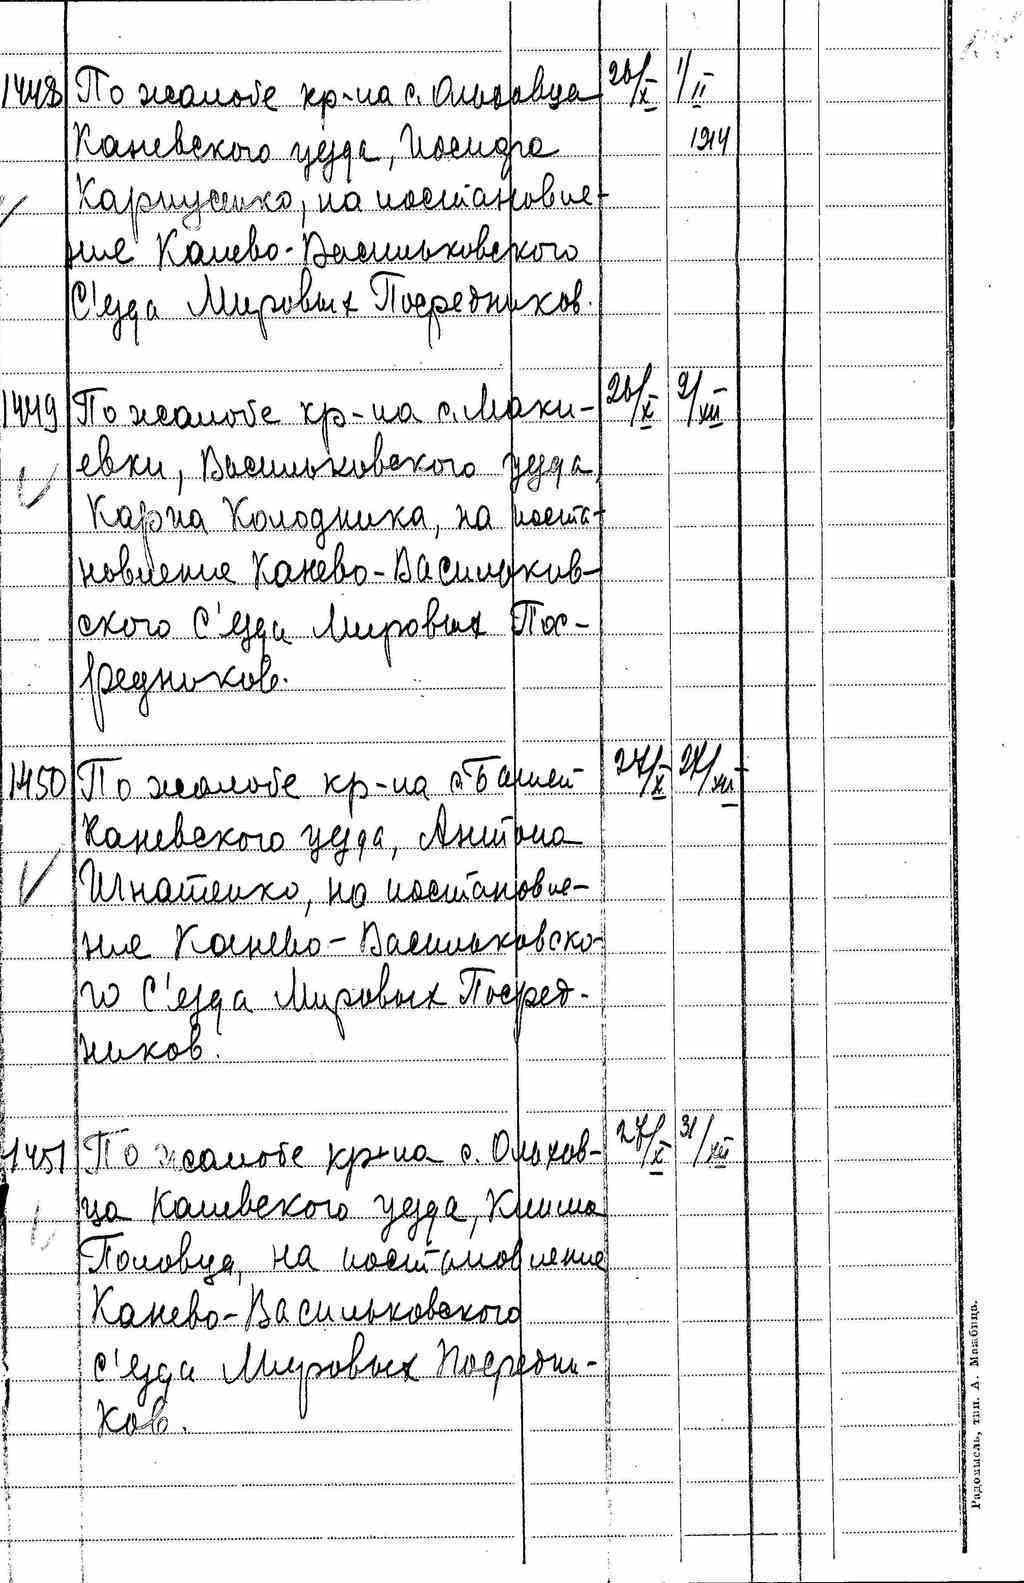 1448 По жалобе кр-на с. Ольховца 26/X 1/II
Каневского уезда, Иосифа 1914
Карпусенко, на постановле-
ние Канево-Васильковского
С'езда Мировых Посредников.
1449 По жалобе кр-на с. Маки- 26/X 9/XII
евки, Васильковского уезда,
Карпа Колодника, на поста-
новление Канево-Васильков-
ского С'езда Мировых Пос-
редников.
1450 По жалобе кр-на с. 27/X 27/XII
Каневского уезда, Антона
Игнатенко, на постановле-
ние Канево-Васильковско-
го С'езда Мировых Посред-
ников.
1451 По жалобе кр-на с. Ольхов- 27/X 31/XII
ца Каневского уезда, Клима
Половца, на постановление
Канево-Васильковского
с'езда Мировых Посредни-
ков.
Радомысль, тип. А. Мажбица.